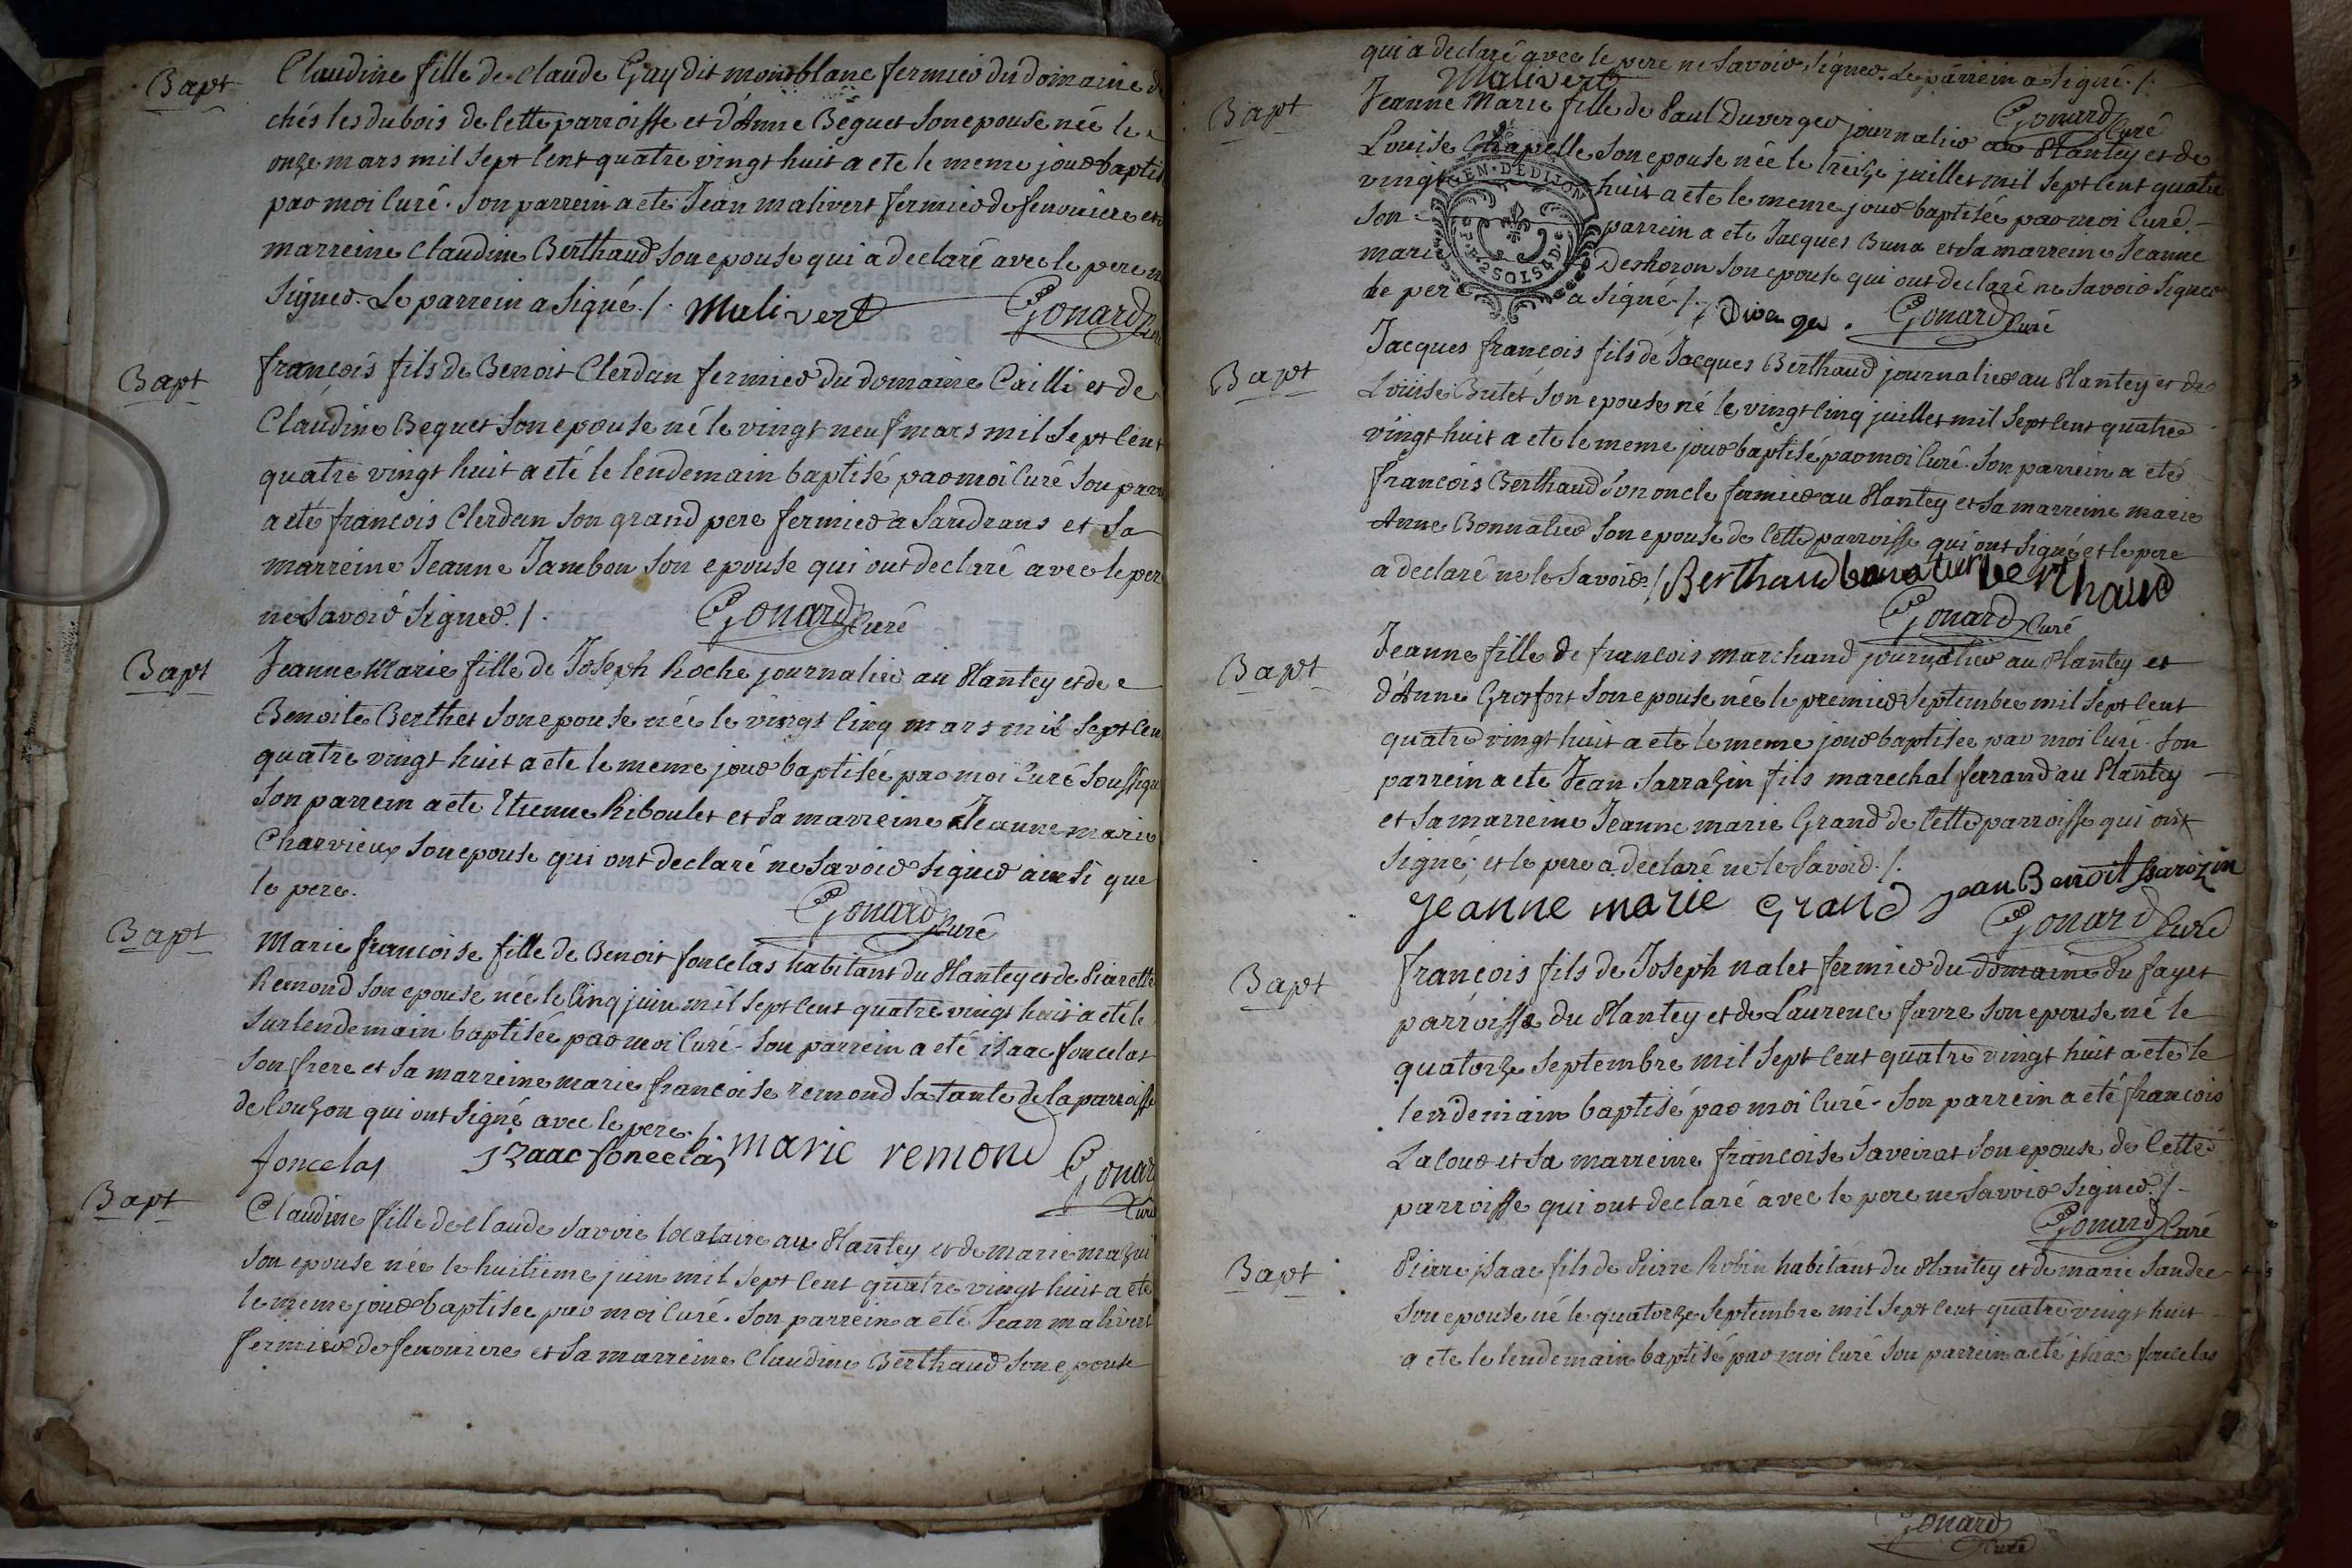 Bapt
Claudine fille de Claude Gay dit monblanc fermier du domaine de
chés les dubois de cette parroisse et d'Anne Beguet son epouse née le
onze mars mil sept cent quatre vingt huit a ete le meme jour baptis
par moi Curé. Son parrein a ete Jean malivert fermier de fenouiere et
marreine Claudine Berthaud son epouse qui a declaré avec le pere
signer. Le parrein a signé ./. Malivert Gonard Curé
Bapt
françois fils de Benoit Clerdan fermier du domaine Cailli et de
Claudine Beguet son epouse né le vingt neuf mars mil sept cent
quatre vingt huit a eté le lendemain baptisé par moi Curé son parr
a ete francois Clerdan son grand pere fermier a Sandrans et sa
marreine Jeanne Jambon son epouse qui ont declaré avec le per
ne savoir signer. /. Gonard Curé
Bapt
Jeanne Marie fille de Joseph Roche journalier au Plantey et de
Benoite Berthet son epouse née le vingt cinq mars mil sept cen
quatre vingt huit a ete le meme jour baptisée par moi Curé soussigné
son parrein a ete Etienne Riboulet et sa marreine Jeanne marie
Charvieux son epouse qui ont declaré ne savoir signer ainsi que
le pere.
Gonard Curé
Bapt
Marie francoise fille de Benoit foncelas habitant du Plantey et de Pierrette
Remond son epouse née le cinq juin mil sept cent quatre vingt huit a eté le
surlendemain baptisée par moi Curé - son parrein a eté isaac foncelas
son frere et sa marreine marie francoise remond sa tante de la parroisse
de Couzon qui ont signé avec le pere. /.
foncelas Izaac foncelas marie remond Gonard
Curé
Bapt
Claudine fille de Claude Savoie locataire au Plantey et de marie mazui
son epouse née le huitieme juin mil sept cent quatre vingt huit a ete
le meme jour baptisée par moi Curé. Son parrein a eté Jean malivert
fermier de fenoniere et sa marreine Claudine Berthaud son epouse
qui a declaré avec le pere ne savoir signer. Le parrein a signé. /.
Malivert
Gonard Curé
Bapt
Jeanne Marie fille de Paul Duverger journalier au Plantey et de
Louise Chapelle son epouse née le treize juillet mil sept cent quatre
vingt huit a ete le meme jour baptisée par moi Curé. -
GEN. DE DIJON
son parrein a ete Jacques Buna et sa marreine Jeanne
marie Deshoron son epouse qui ont declaré ne savoir signer
le pere a signé /. Gonard Curé
Bapt
Jacques françois fils de Jacques Berthaud journalier au Plantey et de
Louise Butet son epouse né le vingt cinq juillet mil sept cent quatre
vingt huit a ete le meme jour baptisé par moi Curé. Son parrein a eté
francois Berthaud son oncle fermier au Plantey et sa marreine marie
Anne Bonnalier son epouse de cette parroisse qui ont signé et le pere
a declaré ne le savoir. / Berthaud Berthaud
Gonard Curé
Bapt
Jeanne fille de francois marchand journalier au Plantey et
d'Anne Grosfort son epouse née le premier septembre mil sept cent
quatre vingt huit a ete le meme jour baptisée par moi Curé. Son
parrein a ete Jean Sarrazin fils marechal ferrand au Plantey
et sa marreine Jeanne marie Grand de cette parroisse qui ont
signé; et le pere a declaré ne le savoir. /.
Jeanne marie Grand Jean Benoit Sarozin
Gonard Curé
Bapt
françois fils de Joseph nalet fermier du domaine du fayet
parroisse du Plantey et de Laurence favre son epouse né le
quatorze septembre mil sept cent quatre vingt huit a ete le
lendemain baptisé par moi Curé - Son parrein a eté francois
Lacour et sa marreine françoise Saveirat son epouse de cette
parroisse qui ont declaré avec le pere ne savoir signer. /.
Gonard Curé
Bapt
Pierre isaac fils de Pierre Robin habitant du Plantey et de marie Sandre
son epouse né le quatorze septembre mil sept cent quatre vingt huit
a ete le lendemain baptisé par moi Curé son parrein a eté isaac foncelas
Gonard
Curé